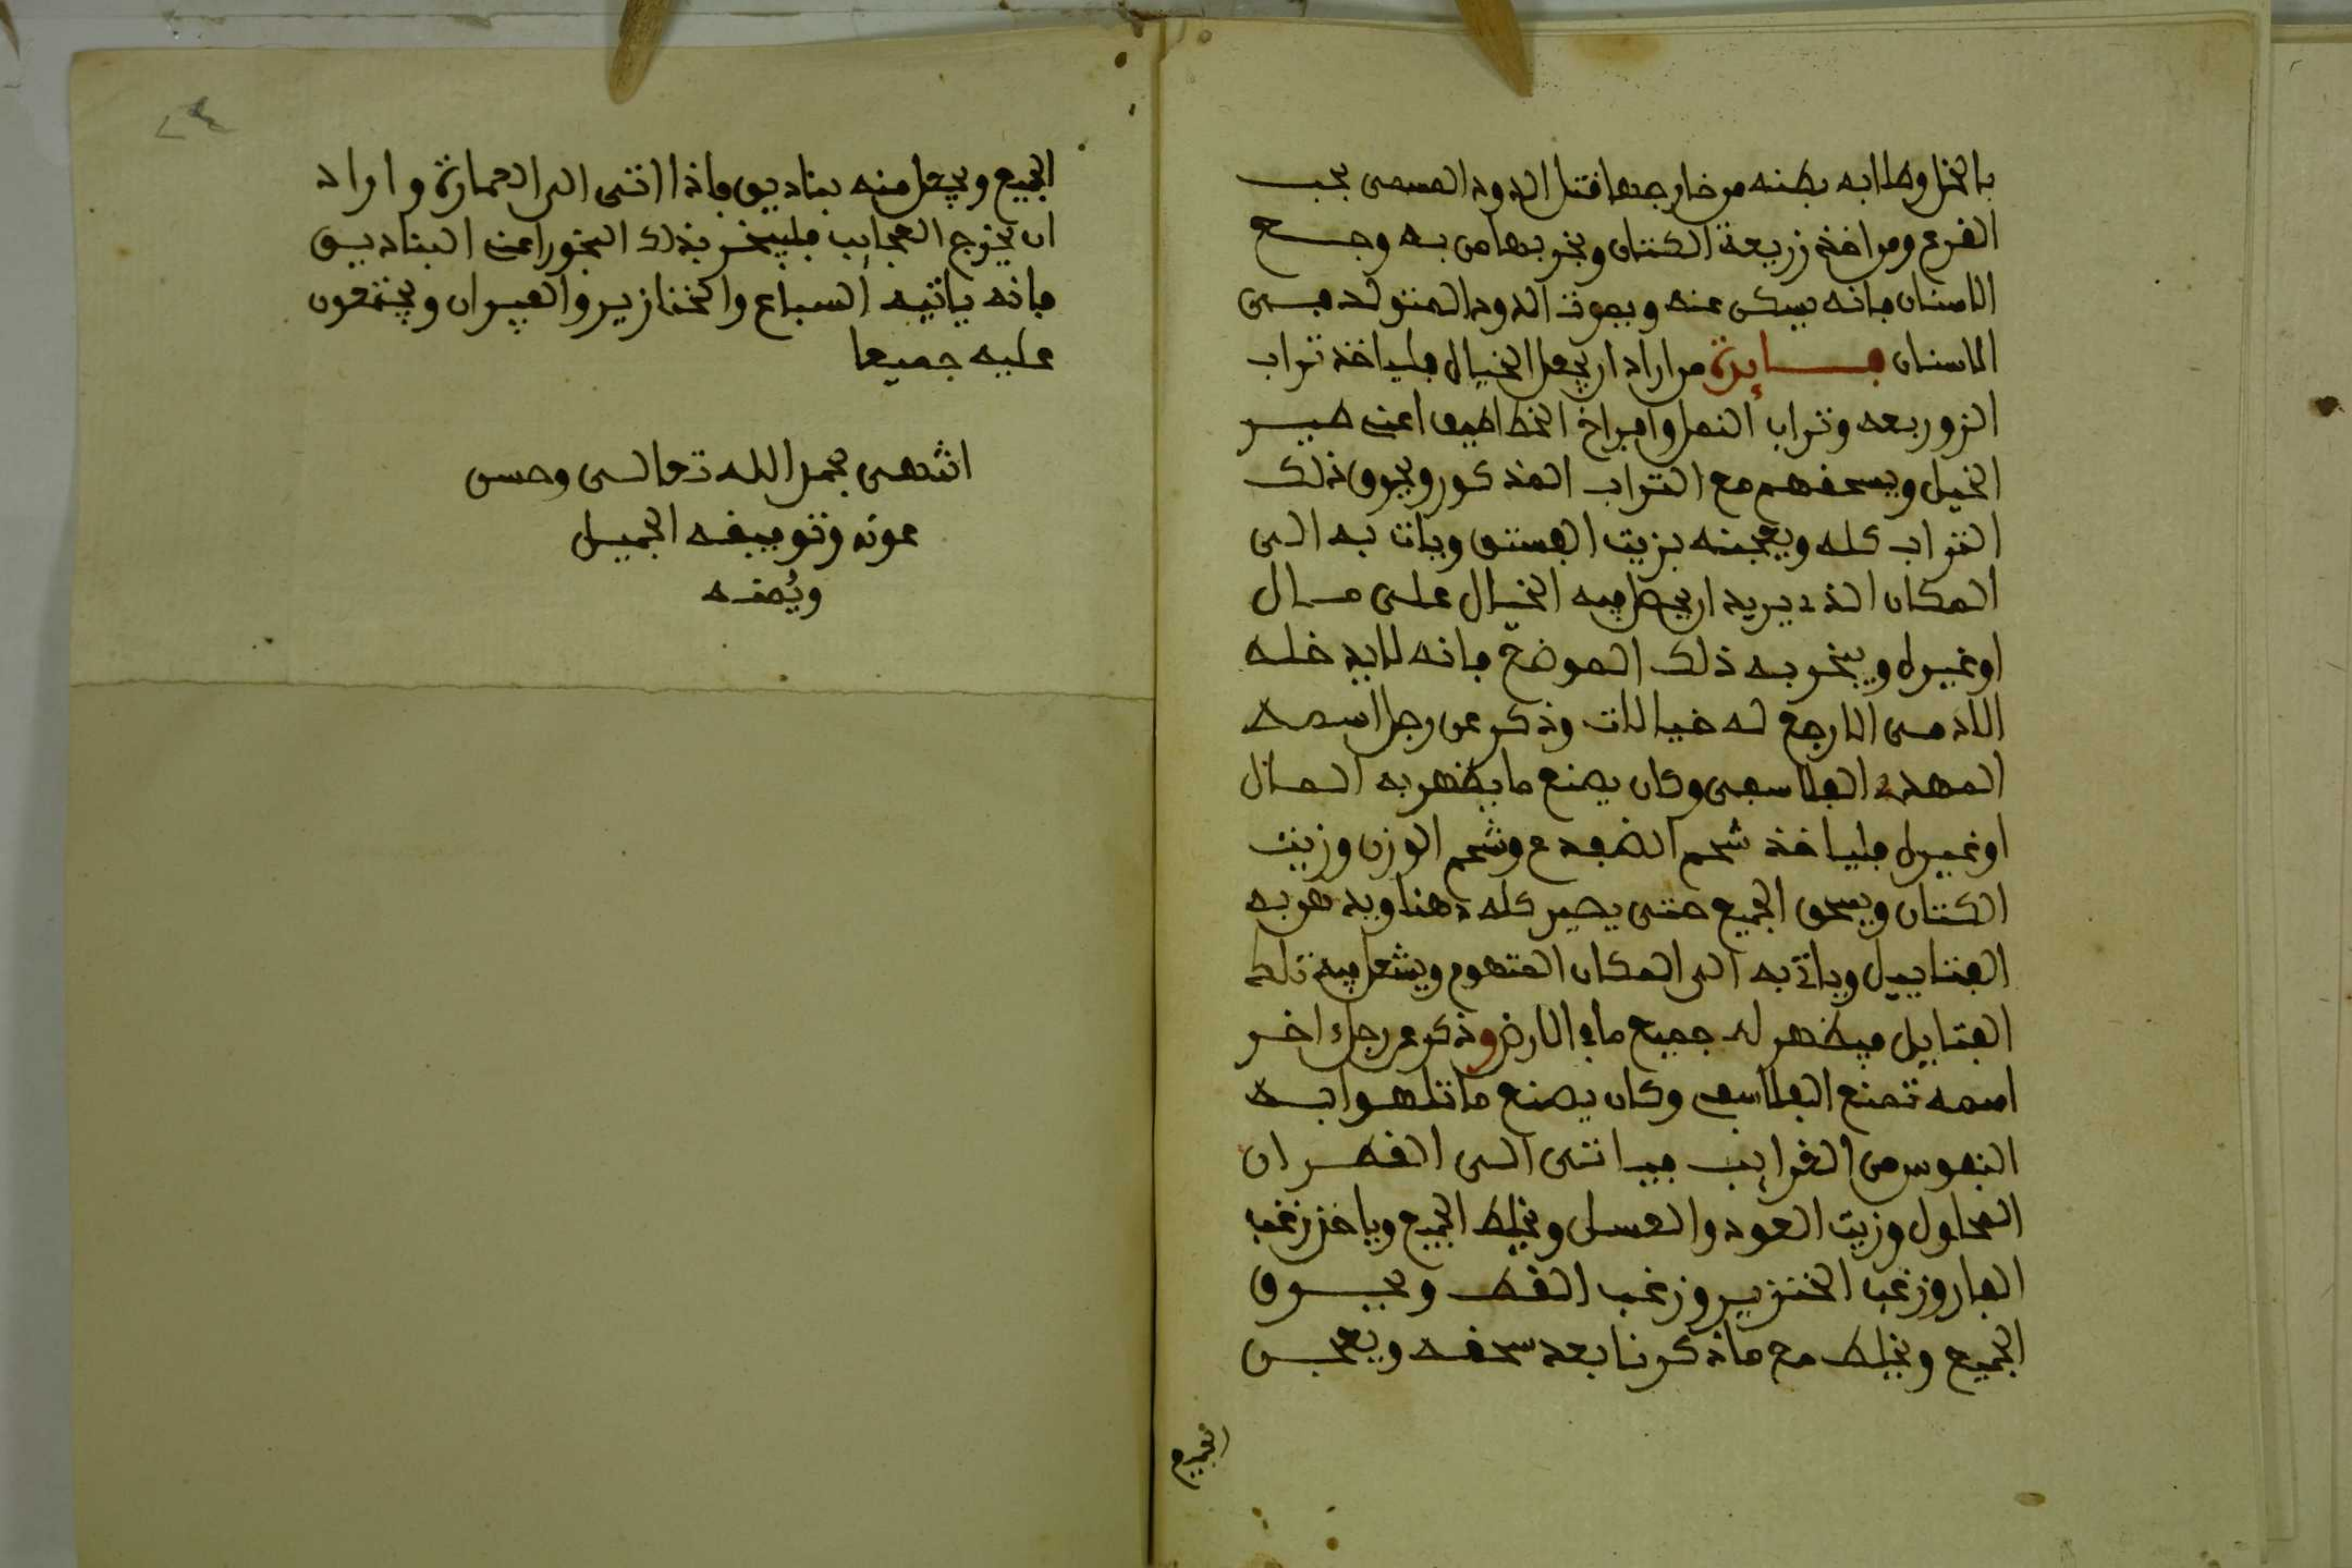 بالخل وطلا به بطنه من خارجها قتل الدود المسمى بحب
الفرع ومن اخذ زريعة الكتان وبخر بها من به وجع
الاسنان فانه يسكن عنه ويموت الدود المتولد في
الاسنان فايدة من اراد ان يجعل الخيال فلياخذ تراب
الزوربعه وتراب النمل وافراخ الخطاطيف اعنى طير
الخيل ويسحقهم مع التراب المذكور ويحرق ذلك
التراب كله ويعجنه بزيت الفستق ويات به الى
المكان الذي يريد ان يجعل فيه الخيال على مال
او غيره ويبخر به ذلك الموضع فانه لا يدخله
الادمى الا رجع له خيالات وذكر عن رجل اسمه
المهدي الفلاسفى وكان يصنع ما يظهر به المال
او غيره فلياخذ شحم الضفدع وشحم الوزن وزيت
الكتان ويسحق الجميع حتى يصير كله دهنا ويدهن به
الفتاييل وياتى به الى المكان المتهوم ويشعل فيه تلك
الفتاييل فيظهر له جميع ما في الارض وذكر عن رجل اخر
اسمه تمنع الفلاسفى وكان يصنع ما تلهوا به
النفوس من الغرايب فياتى الى القطران
المحلول وزيت العود والعسل ويخلط الجميع وياخذ زغب
الفار وزغب الخنزير وزغب القط ويحرق
الجميع ويخلط مع ما ذكرنا بعد سحقه ويعجن
الجميع
الجميع ويجعل منه بناديق فاذا اتى الى العمارة واراد
ان يخرج العجايب فليبخر بذلك البخور اعنى البناديق
فانه ياتيه السباع والخنازير والفيران ويجتمعون
عليه جميعا
انتهى بحمد الله تعالى وحسن
عونه وتوفيقه الجميل
ويُمنه